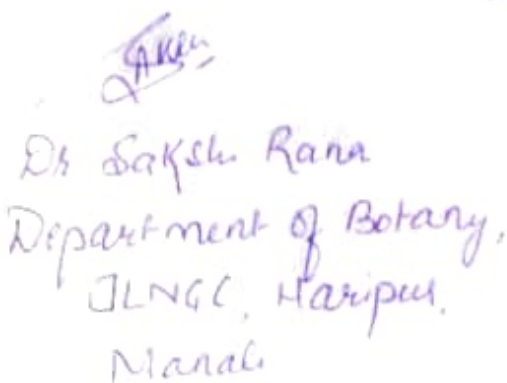 Dr Sakshi Rana
Department of Botany,
JLNGC, Haripur,
Manali